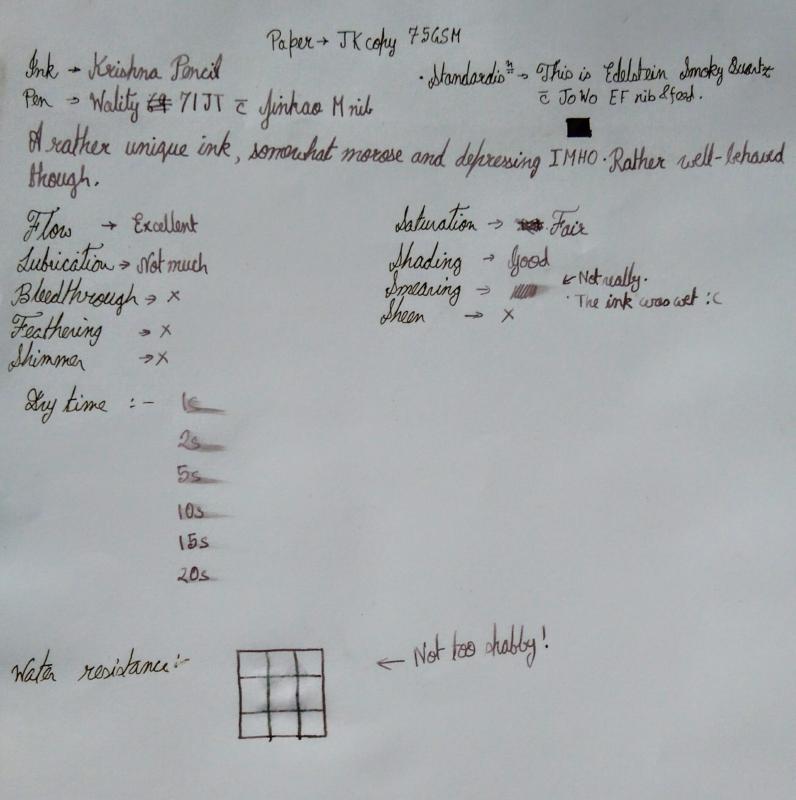 Paper → JK copy 75GSM
Ink → Krishna Pencil
Pen → Wality 71JT c̄ Jinhao M nib
• Standardisⁿ → This is Edelstein Smoky Quartz
c̄ JoWo EF nib & feed.
A rather unique ink, somewhat morose and depressing IMHO. Rather well-behaved
though.
Flow → Excellent
Lubrication → Not much
Bleedthrough → x
Feathering → x
Shimmer → x
Saturation → Fair
Shading → Good
Smearing → ← Not really.
• The ink was wet :c
Sheen → x
Dry time :-
1s
2s
5s
10s
15s
20s
Water resistance:-
← Not too shabby!